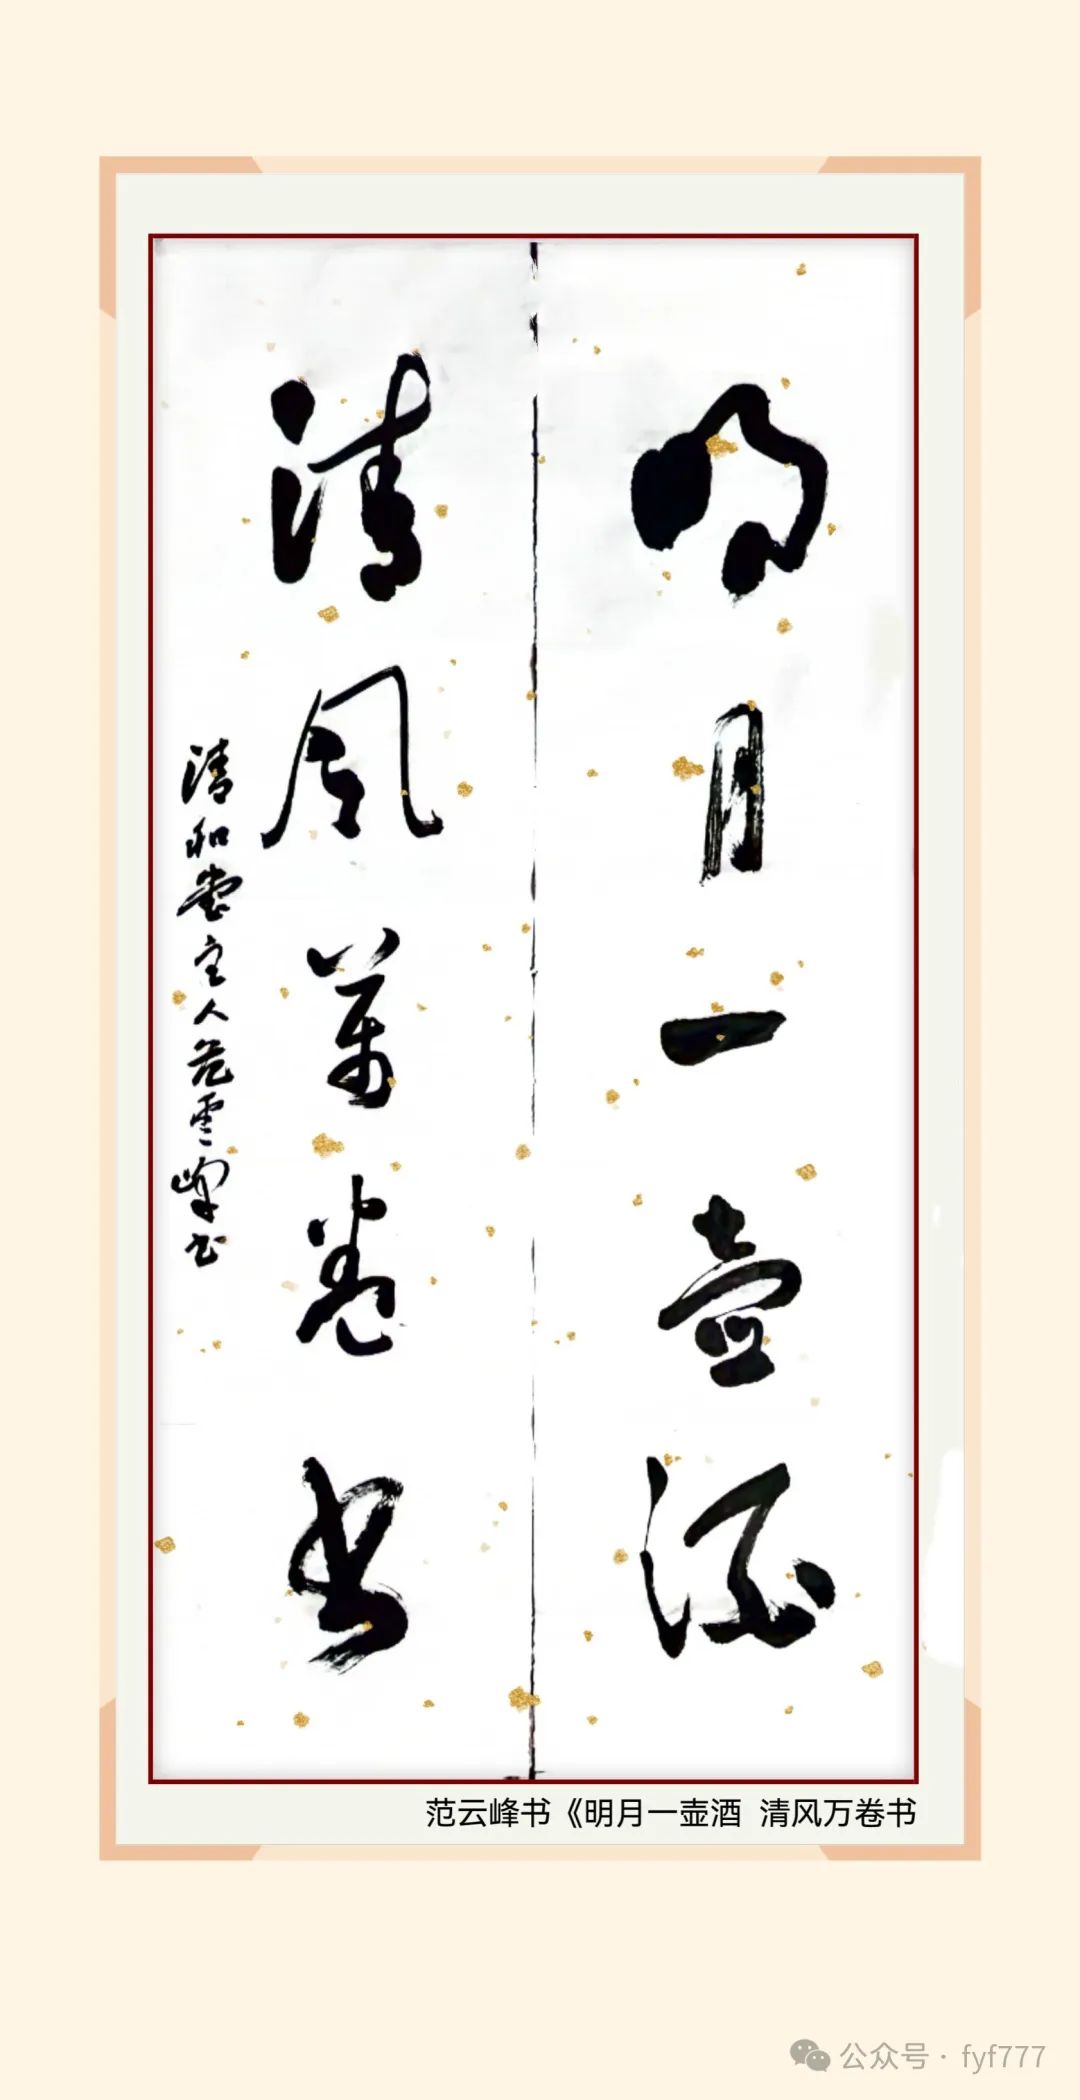 明月一壶酒
清风萬卷书
清和堂主人范雲峰书
范云峰书《明月一壶酒 清风万卷书
公众号 · fyf777